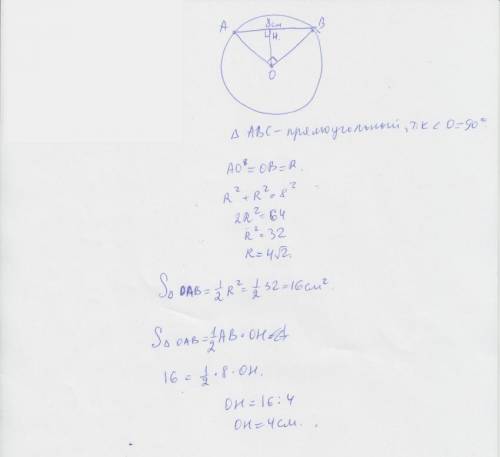 A 8см B
H
O
△ ABC - прямоугольный, т.к < O = 90°
AO = OB = R.
R² + R² = 8²
2R² = 64
R² = 32
R = 4√2.
S△ OAB = 1/2 R² = 1/2 32 = 16 см².
S△ OAB = 1/2 AB · OH =
16 = 1/2 · 8 · OH.
OH = 16 : 4
OH = 4 см.